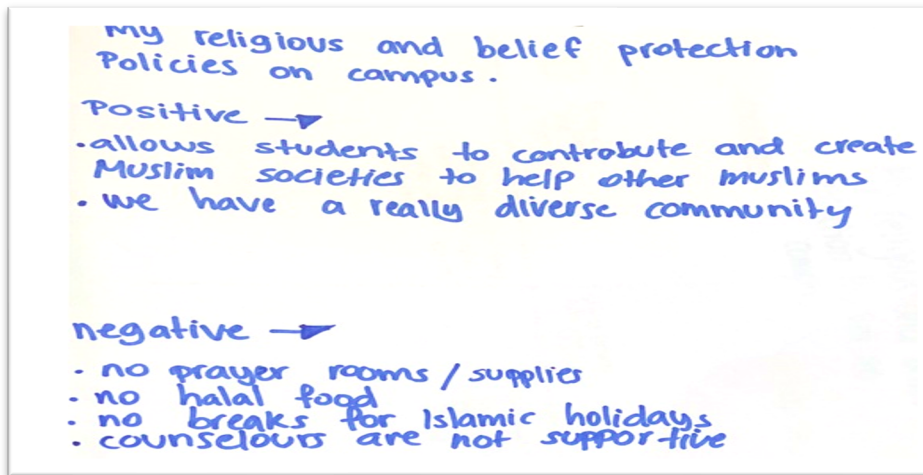 My religious and belief protection
Policies on campus.
Positive →
• allows students to controbute and create
Muslim societies to help other muslims
• we have a really diverse community
negative →
• no prayer rooms / supplies
• no halal food
• no breaks for Islamic holidays
• counselours are not supportive